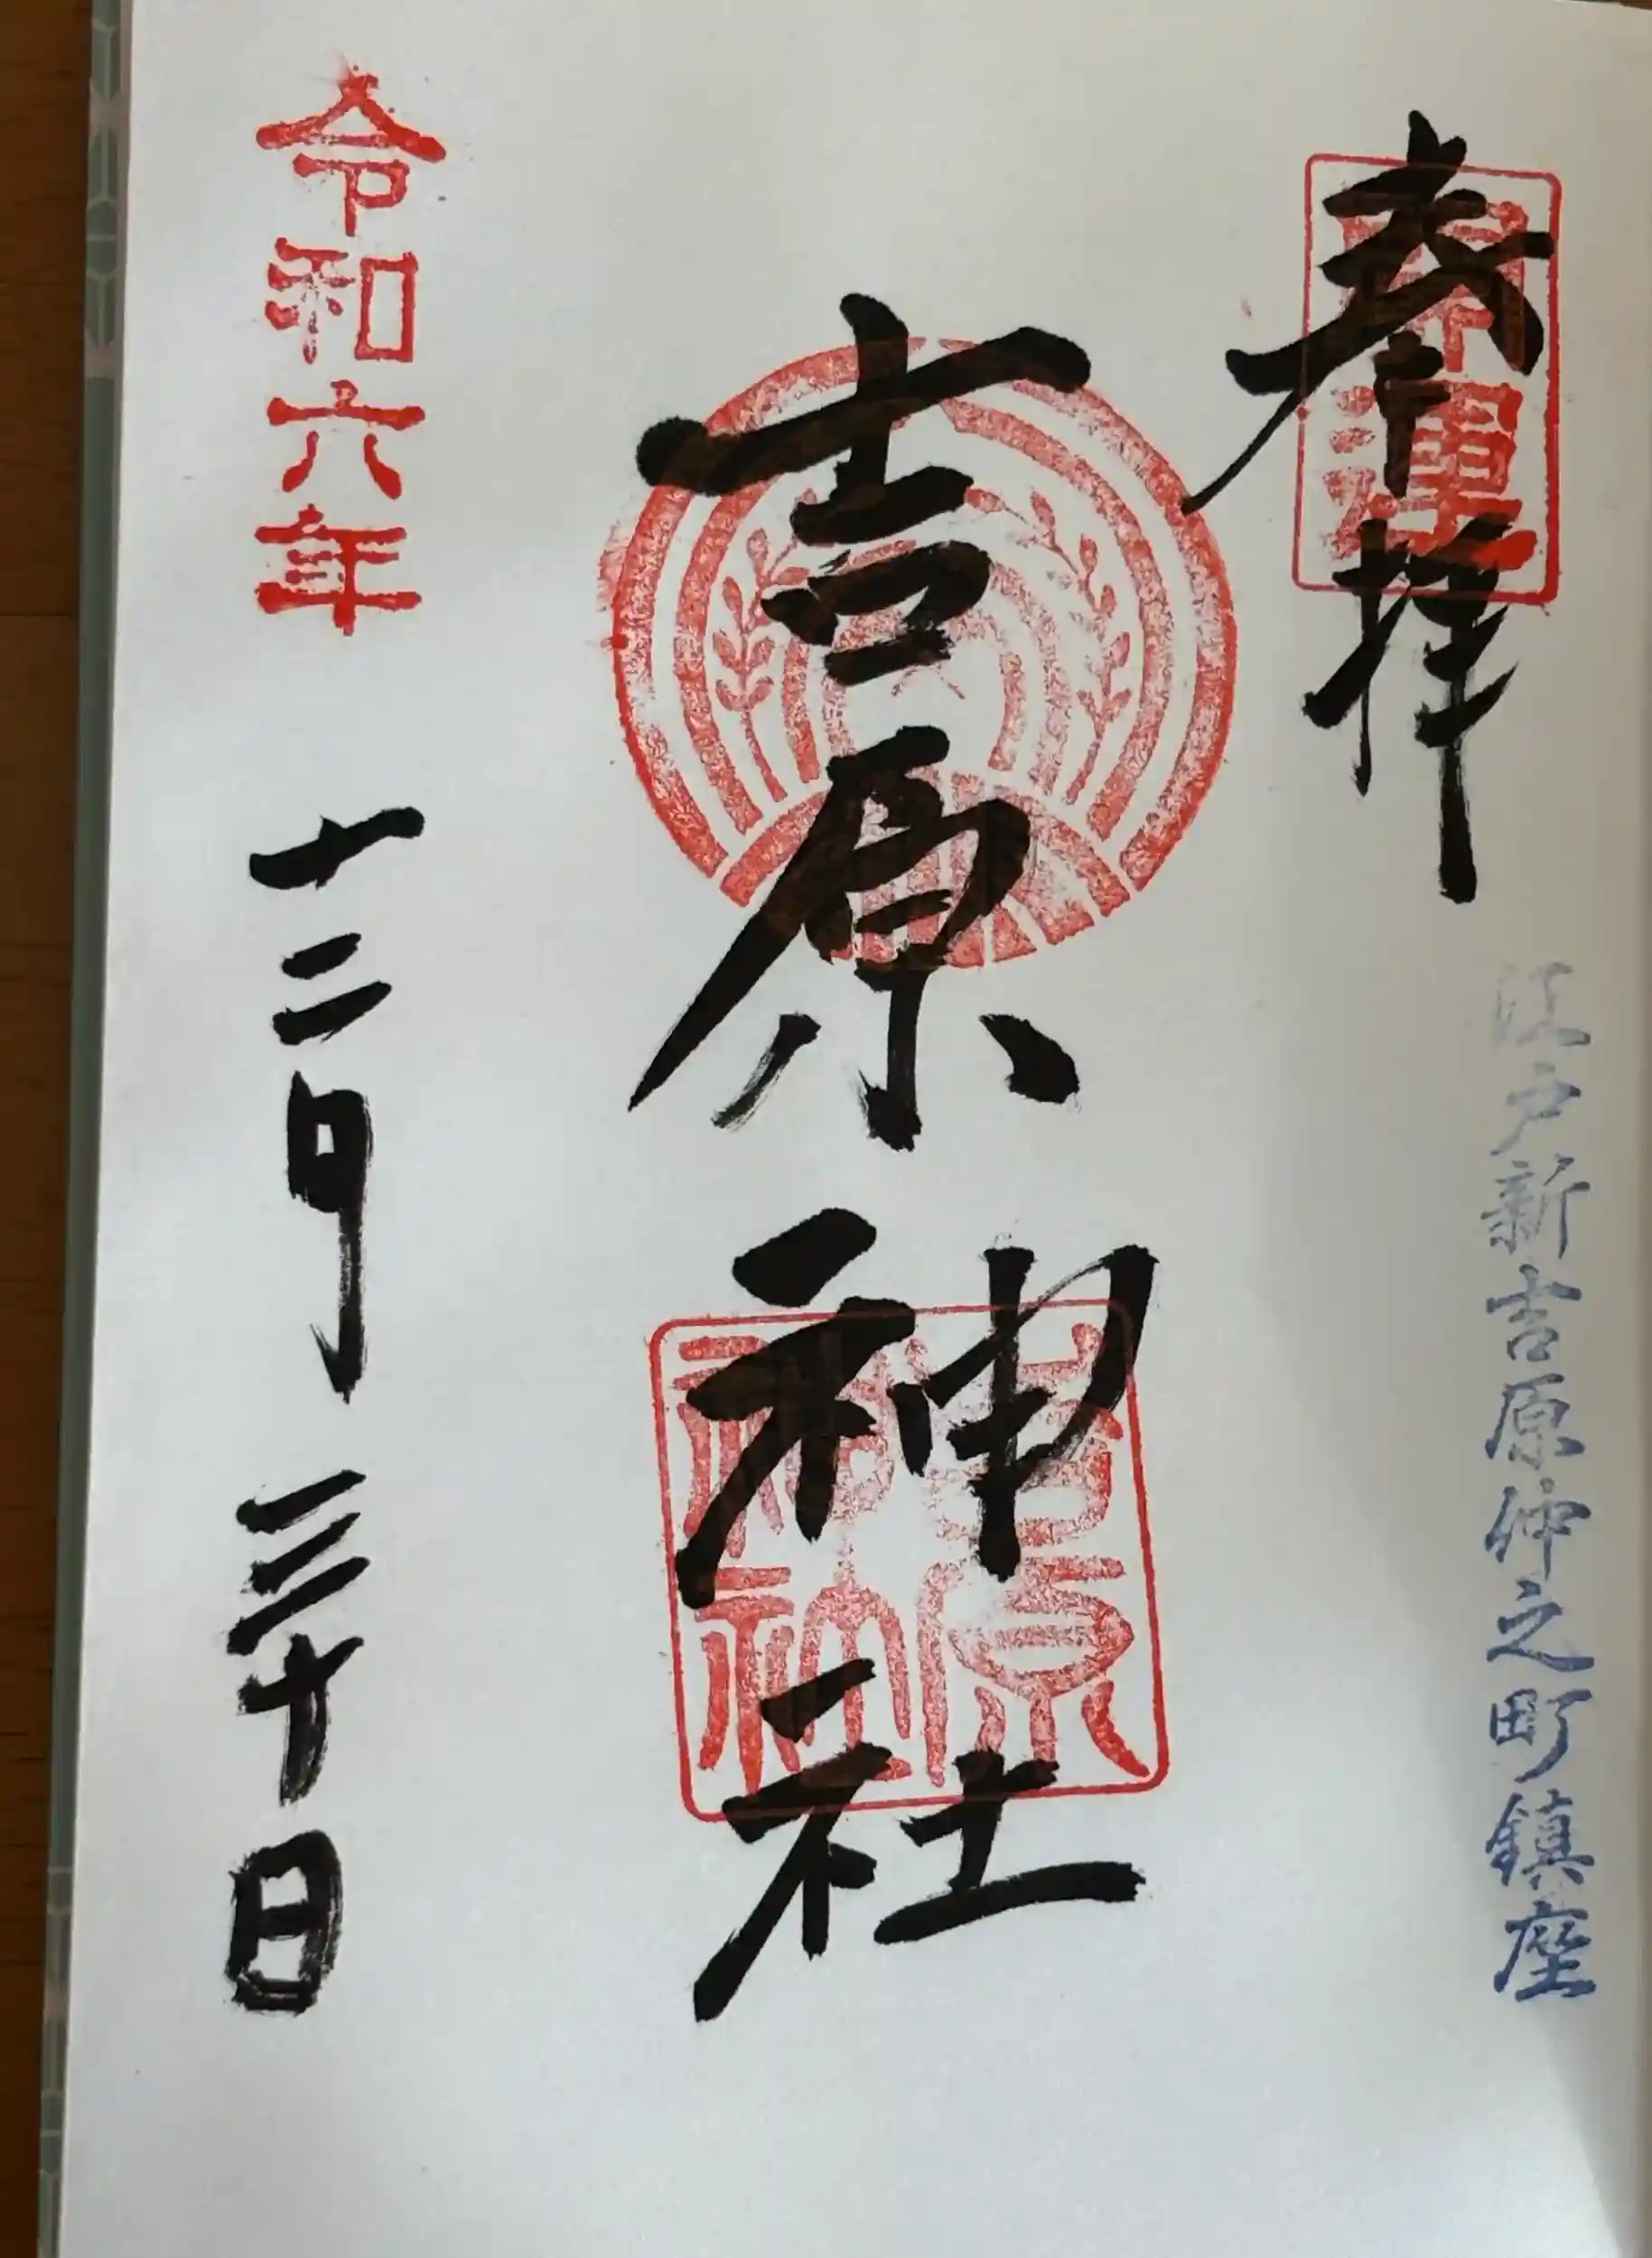 奉拝
江戸新吉原仲之町鎮座
吉原神社
吉原神社
令和六年
十二月三十日